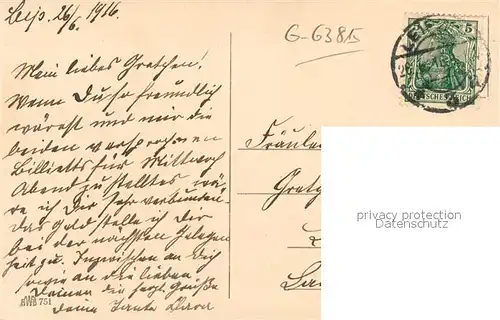 Leip. 26/6. 1916.
Mein liebes Gretchen!
Wenn Du so freundlich
wärest und mir die
beiden versprochnen
Billietts für Mittwoch
Abend zustelltest wä-
re ich Dir sehr verbunden.
Das Geld stelle ich Dir
bei der nächsten Gelegen
heit zu. Inzwischen an Dich
sowie an die lieben
Deinen die herzl. Grüße
Deine Tante Clara
RWB 751
G-6381
5
DEUTSCHES REICH
Fräulein
Gretch
privacy protection
Datenschutz